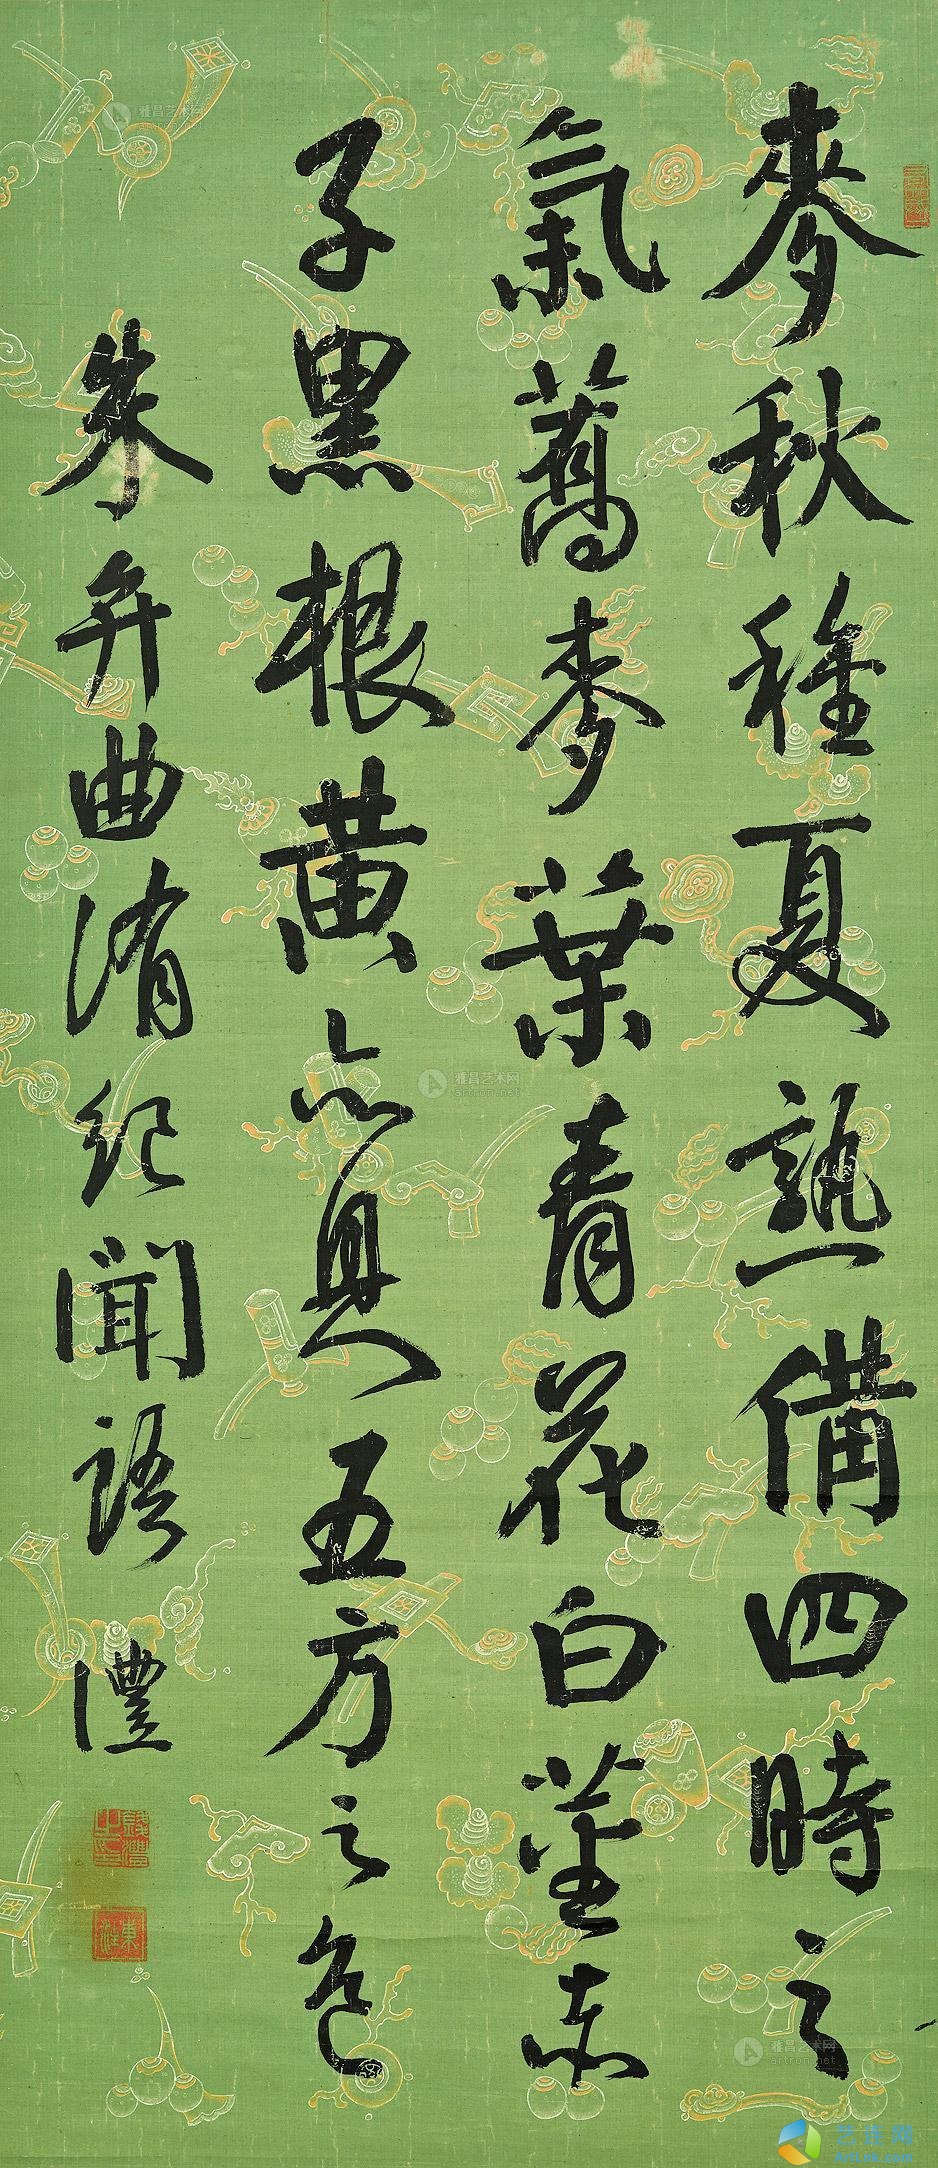 麥秋種夏熟備四時之
氣蕎麥葉青花白莖赤
子黑根黃亦具五方之色
朱弁曲洧紀聞語 灃
錢灃之印
東注
雅昌艺术网
artron.net